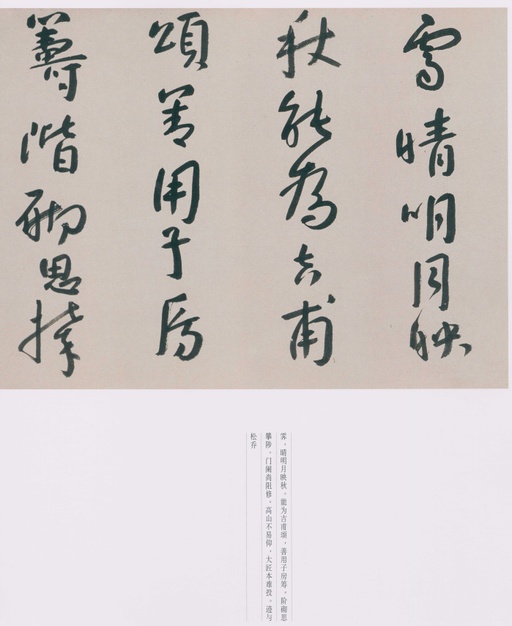 霁晴明月映
秋能为吉甫
颂善用子房
筹阶砌思攀
霁，晴明月映秋，能为吉甫颂，善用子房筹，阶砌思
攀陟，门阑尚阻修，高山不易仰，大匠本难投，迹与
松乔